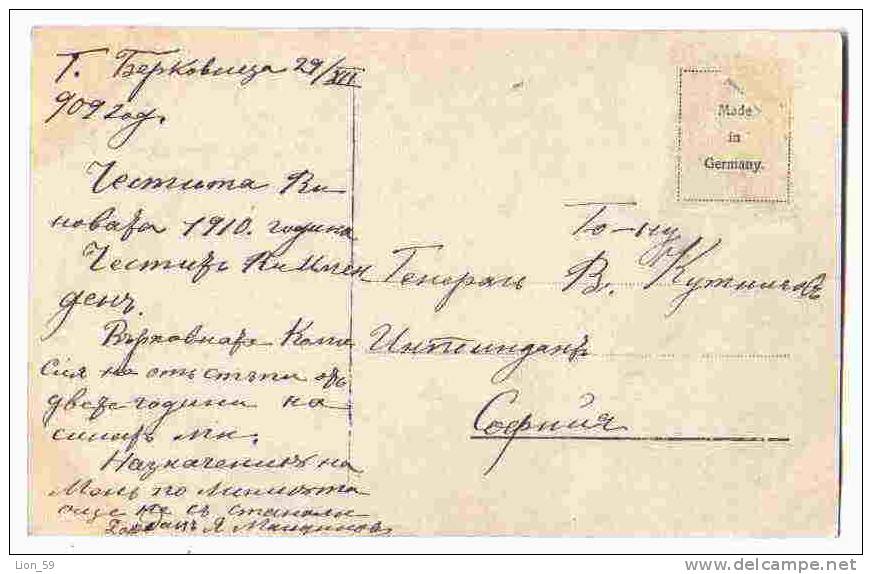 Г. Берковица 29/XII
909 год.
Честита Ви
новата 1910. година
Честитъ Ви Имен
денъ.
Върховната Коми
сия на отстъпи отъ
двете години на
синатъ ми.
Назначения на
Менъ по
още не съ станали
Made
in
Germany.
Го-ну
Генералъ В. Кутинчевъ
Интендантъ
София
Lion_59
www.delcampe.net